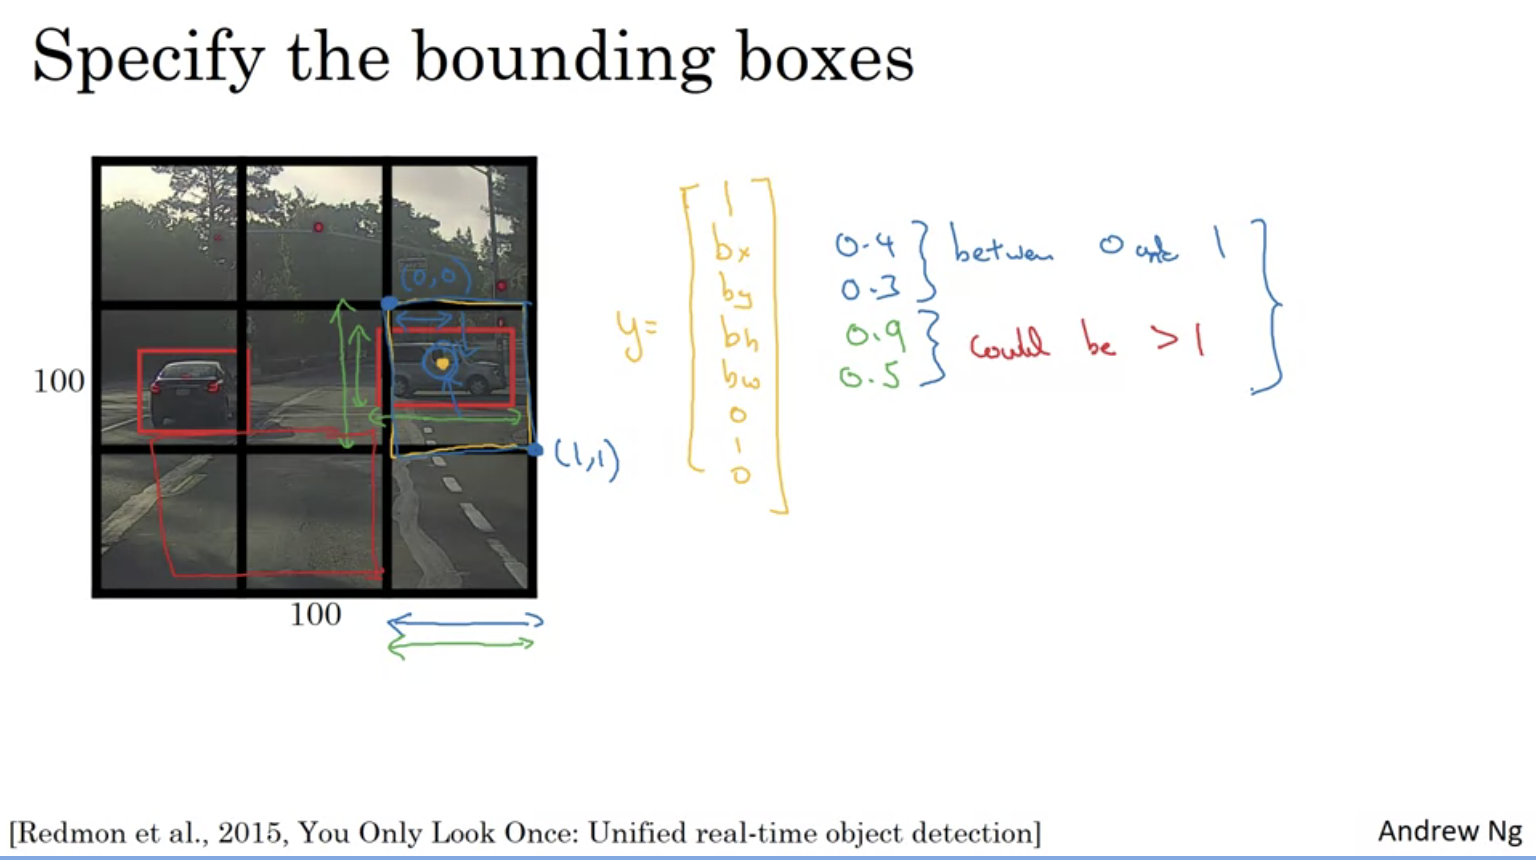 Specify the bounding boxes
(0,0)
100
(1,1)
100
y=
1
bx
by
bh
bw
0
1
0
0.4
0.3
between 0 and 1
0.9
0.5
could be >1
[Redmon et al., 2015, You Only Look Once: Unified real-time object detection]
Andrew Ng